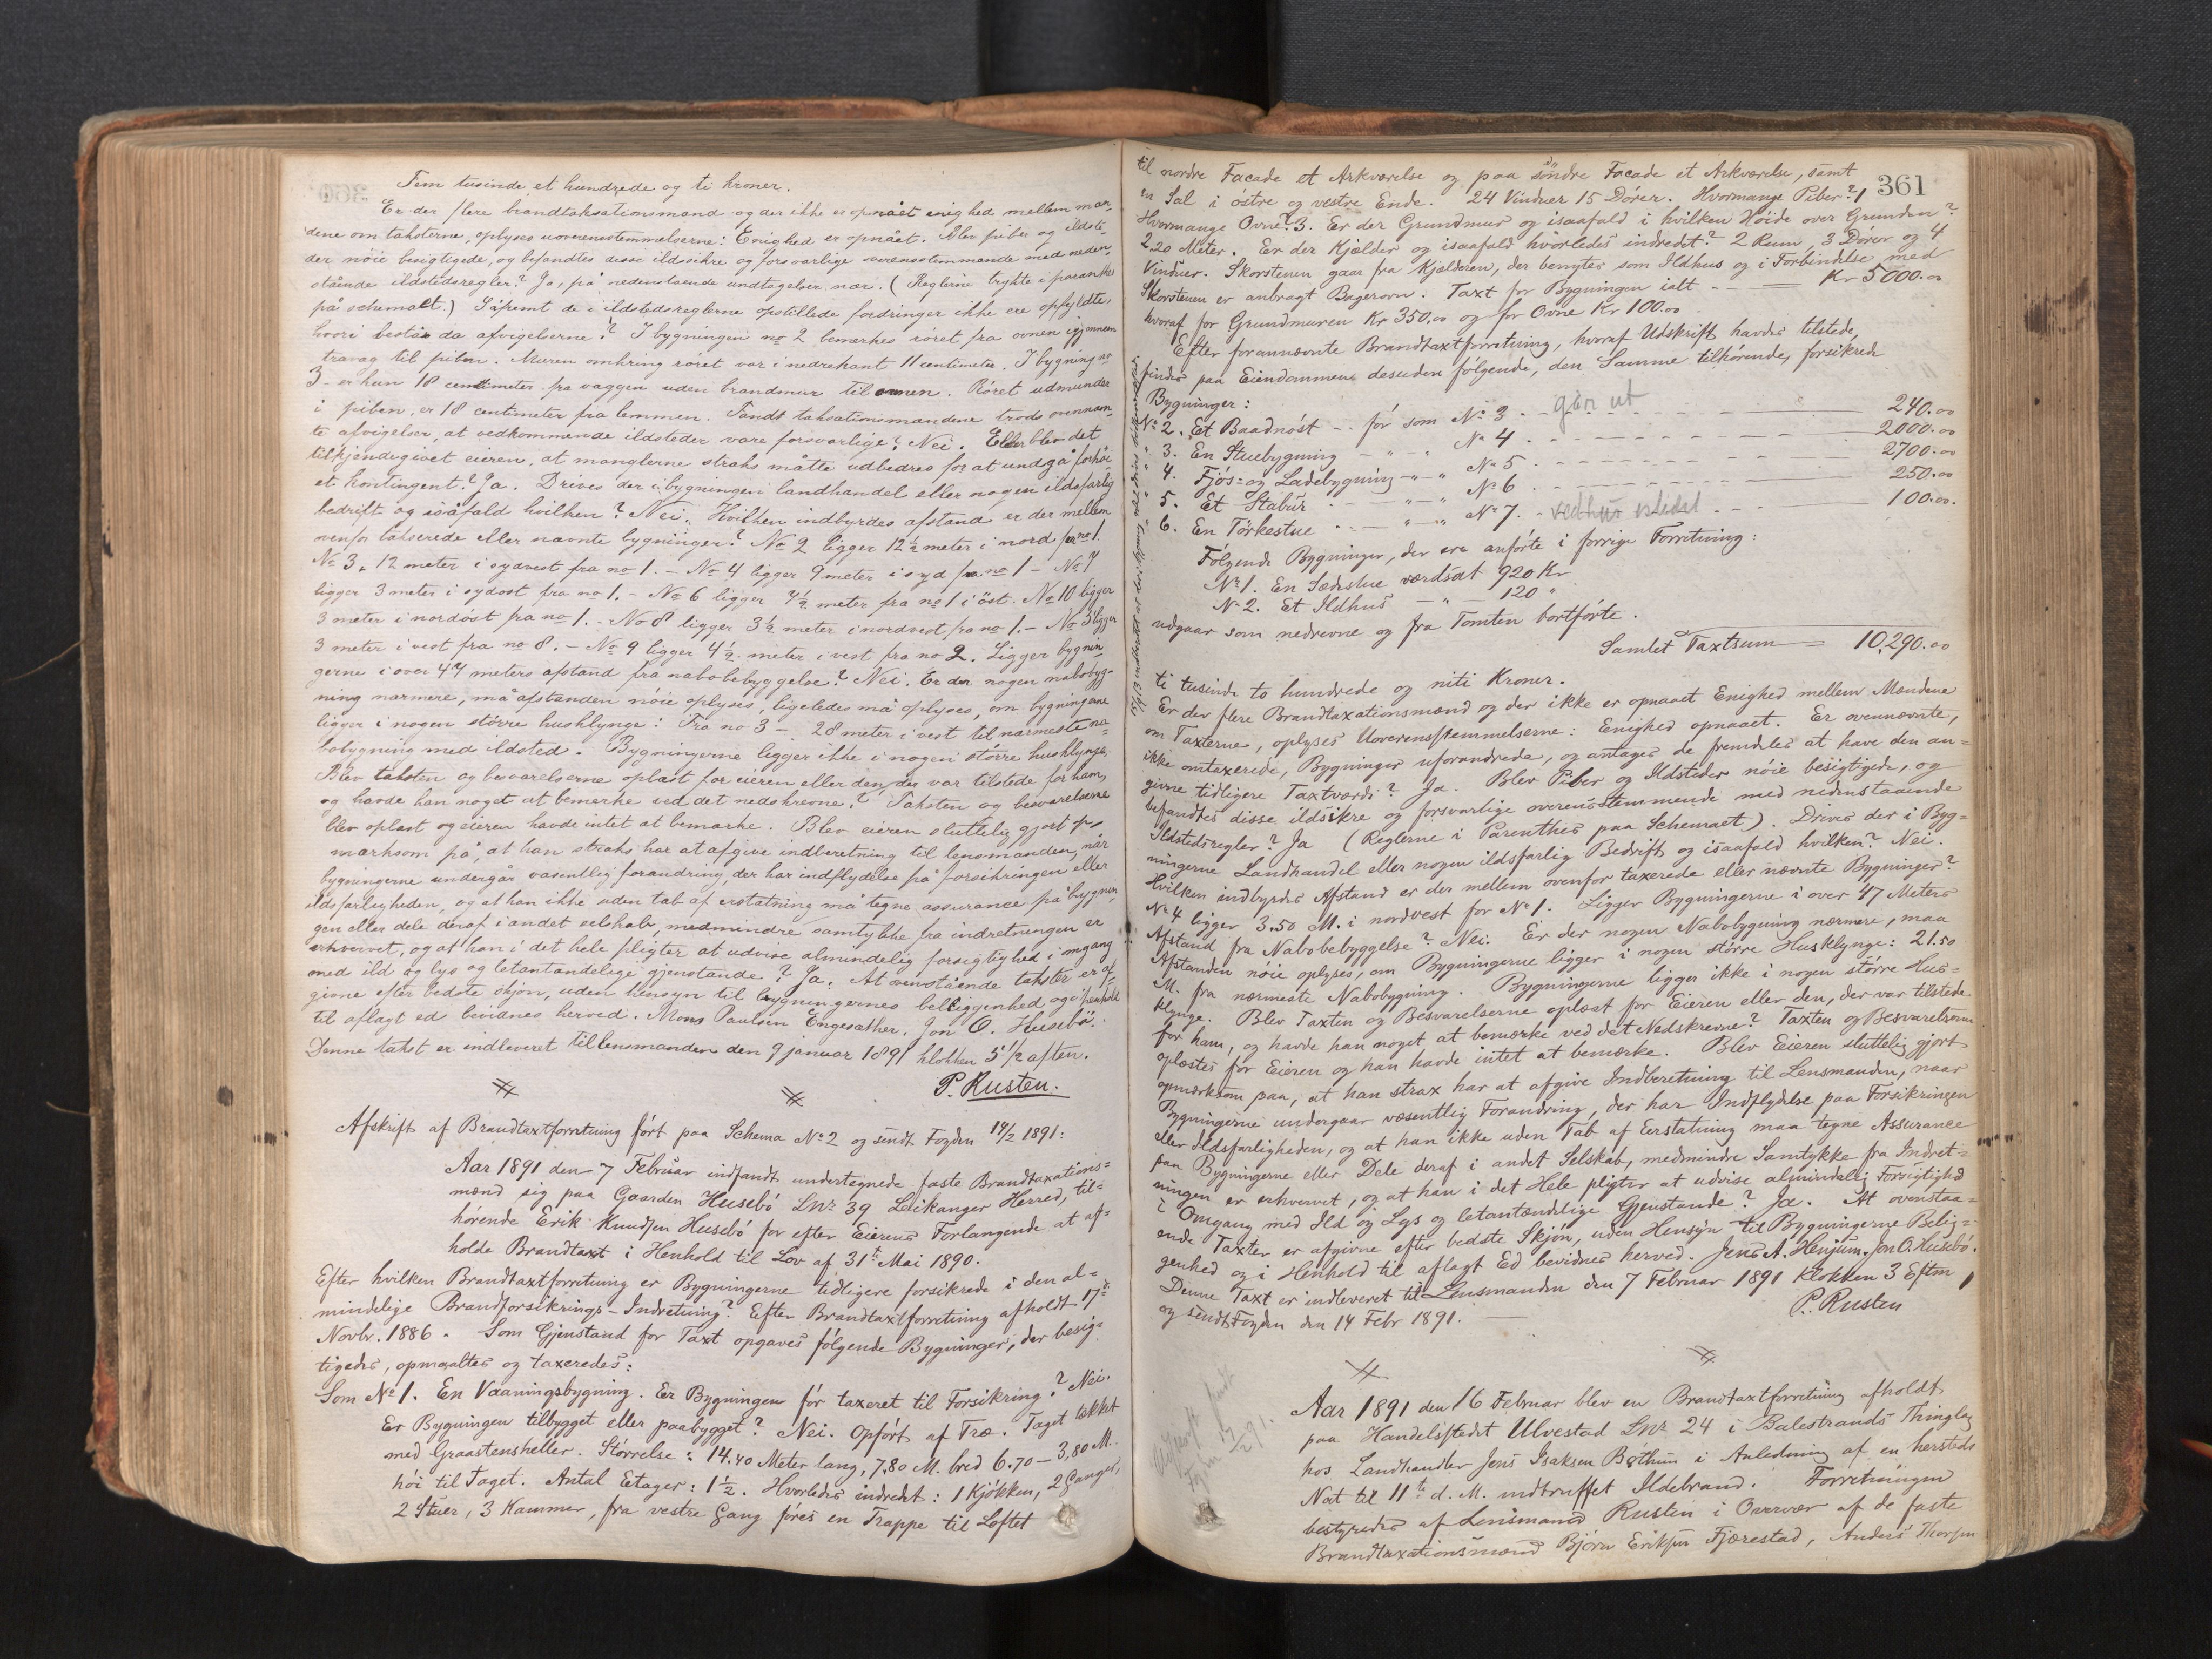 Fem tusinde et hundrede og ti kroner.
Er der flere brandtaksationsmænd og der ikke er opnået enighed mellem mæn-
dene om taksterne, oplyses uoverensstemmelserne: Enighed er opnået. Blev piber og ildste-
der nöie besigtigede, og befandtes disse ildsikre og forsvarlige overensstemmende med neden-
stående ildstedsregler? Ja, på nedenstående undtagelser nær. (Reglerne trykte i parenthes
på schemaet.) Såfremt de i ildstedsreglerne opstillede fordringer ikke ere opfyldte,
hvori består da afvigelserne? I bygningen no 2 bemærkes röret fra ovnen igjennem
travæg til piben. Muren omkring röret var i nedrekant 11 centimeter. I bygning no
3 er kun 18 centimeter fra væggen uden brandmur til ovnen. Röret udmunder
i piben, er 18 centimeter fra lemmen. Fandt taksationsmændene trods ovennævn-
te afvigelser, at vedkommende ildsteder vare forsvarlige? Nei. Eller blev det
tilkjendegivet eieren, at manglerne straks måtte udbedres for at undgå forhöi-
et kontingent? Ja. Drives der i bygningen landhandel eller nogen ildsfarlig
bedrift og isåfald hvilken? Nei. Hvilken indbyrdes afstand er der mellem
ovenfor takserede eller nævnte bygninger? No 2 ligger 12½ meter i nord fra no 1.
No 3, 12 meter i sydvest fra no 1. - No 4 ligger 9 meter i syd fra no 1 - No 7
ligger 3 meter i sydost fra no 1. - No 6 ligger 7½ meter fra no 1 i öst. No 10 ligger
3 meter i nordöst fra no 1. - No 8 ligger 3½ meter i nordvest fra no 1. - No 3 ligger
3 meter i vest fra no 8. - No 9 ligger 4½ meter i vest fra no 2. Ligger bygnin-
gerne i over 47 meters afstand fra nabobebyggelse? Nei. Er der nogen nabobyg-
ning nærmere, må afstanden nöie oplyses, ligeledes må oplyses, om bygningerne
ligger i nogen större husklynge: Fra no 3 - 28 meter i vest til nærmeste na-
bobygning med ildsted. Bygningerne ligger ikke i nogen större husklynge.
Blev taksten og besvarelserne oplæst for eieren eller den, der var tilstede for ham,
og havde han noget at bemærke ved det nedskrevne? Taksten og besvarelserne
blev oplæst og eieren havde intet at bemærke. Blev eieren sluttelig gjort op-
mærksom på, at han straks har at afgive indberetning til lensmanden, når
bygningerne undergår væsentlig forandring, der har indflydelse på forsikringen eller
ildsfarligheden, og at han ikke uden tab af erstatning må tegne assurance på bygnin-
gen eller dele deraf i andet selskab, medmindre samtykke fra indretningen er
erhvervet, og at han i det hele pligter at udvise almindelig forsigtighed i omgang
med ild og lys og letantændelige gjenstande? Ja. At ovenstående takster er af-
givne efter bedste skjön, uden hensyn til bygningernes beliggenhed og i henhold
til aflagt ed bevidnes herved. Mons Paulsen Engesæther. Jon O. Husebö.
Denne takst er indleveret til lensmanden den 9 januar 1891 klokken 5½ aften.
P. Rusten.
Afskrift af Brandtaxtforretning fört paa Schema No 2 og sendt Fogden 14/2 1891:
Aar 1891 den 7 Februar indfandt undertegnede faste Brandtaxations=
mænd sig paa Gaarden Husebö Lnr 39 Leikanger Herred, til=
hörende Erik Knudsen Husebö for efter Eierens Forlangende at af=
holde Brandtaxt i Henhold til Lov af 31te Mai 1890.
Efter hvilken Brandtaxtforretning er Bygningerne tidligere forsikrede i den al=
mindelige Brandforsikrings-Indretning? Efter Brandtaxtforretning afholdt 17de
Novbr. 1886. Som Gjenstand for Taxt opgaves fölgende Bygninger, der besig=
tigedes, opmaaltes og taxeredes:
Som No 1. En Vaaningsbygning. Er Bygningen för taxeret til Forsikring? Nei.
Er Bygningen tilbygget eller paabygget? Nei. Opfört af Træ. Taget tækket
med Graastensheller. Störrelse: 14.40 Meter lang, 7.80 M. bred 6.70 - 3,80 M.
höi til Taget. Antal Etager: 1½. Hvorledes indredet: 1 Kjökken, 2 Gange,
2 Stuer, 3 Kammer, fra vestre Gang föres en Trappe til Loftet
361
til nordre Facade et Arkværelse og paa söndre Facade et Arkværelse, samt
en Sal i östre og vestre Ende. 24 Vinduer 15 Dörer. Hvormange Piber? 1
Hvormange Ovne? 3. Er der Grundmur og isaafald i hvilken Höide over Grunden?
2.20 Meter. Er der Kjælder og isaafald hvorledes indredet? 2 Rum, 3 Dörer og 4
Vinduer. Skorstenen gaar fra Kjælderen, der benyttes som Ildhus og i Forbindelse med
Skorstenen er anbragt Bagerovn. Taxt for Bygningen ialt - - Kr 5000.00
hvoraf for Grundmuren Kr 350.00 og for Ovne Kr 100.00
Efter forannævnte Brandtaxtforretning, hvoraf Udskrift havdes tilstede,
findes paa Eiendommen desuden fölgende, den Samme tilhörende, forsikrede
Bygninger:
No 2. Et Baadnöst - - för som No 3. gaar ut 240.00
" 3. En Stuebygning - " - No 4. 2000.00
" 4. Fjös= og Ladebygning - " - No 5 2700.00
" 5. Et Stabur - " - No 6 250.00
" 6. En Törkestue - " - No 7. - vedhus istedet 100.00.
Fölgende Bygninger, der ere anförte i forrige Forretning:
No 1. En Sædestue værdsat 920 Kr
No 2. Et Ildhus - " - 120 "
udgaar som nedrevne og fra Tomten bortförte.
Samlet Taxtsum = 10,290.00
ti tusinde to hundrede og niti Kroner.
Er der flere Brandtaxationsmænd og der ikke er opnaaet Enighed mellem Mændene
om Taxterne, oplyses Uoverensstemmelserne: Enighed opnaaet. Er ovennævnte,
ikke omtaxerede, Bygninger uforandrede, og antages de fremdeles at have den an=
givne tidligere Taxtværdi? Ja. Blev Piber og Ildsteder nöie besigtigede, og
befandtes disse ildsikre og forsvarlige overensstemmende med nedenstaaende
Ildstedsregler? Ja (Reglerne i Parenthes paa Schemaet). Drives der i Byg=
ningerne Landhandel eller nogen ildsfarlig Bedrift og isaafald hvilken? Nei.
Hvilken indbyrdes Afstand er der mellem ovenfor taxerede eller nævnte Bygninger?
No 4 ligger 3.50 M. i nordvest for No 1. Ligger Bygningerne i over 47 Meters
Afstand fra Nabobebyggelse? Nei. Er der nogen Nabobygning nærmere, maa
Afstanden nöie oplyses, om Bygningerne ligger i nogen större Husklynge: 21.50
M. fra nærmeste Nabobygning. Bygningerne ligger ikke i nogen större Hus=
klynge. Blev Taxten og Besvarelserne oplæst for Eieren eller den, der var tilstede
for ham, og havde han noget at bemærke ved det Nedskrevne? Taxten og Besvarelserne
oplæstes for Eieren og han havde intet at bemærke. Blev Eieren sluttelig gjort
opmærksom paa, at han strax har at afgive Indberetning til Lensmanden, naar
Bygningerne undergaar væsentlig Forandring, der har Indflydelse paa Forsikringen
eller Ildsfarligheden, og at han ikke uden Tab af Erstatning maa tegne Assurance
paa Bygningerne eller Dele deraf i andet Selskab, medmindre Samtykke fra Indret=
ningen er erhvervet, og at han i det Hele pligter at udvise almindelig Forsigtighed
i Omgang med Ild og Lys og letantændelige Gjenstande? Ja. At ovenstaa=
ende Taxter er afgivne efter bedste Skjön, uden Hensyn til Bygningerne Belig=
genhed og i Henhold til aflagt Ed bevidnes herved. Jens A. Henjum. Jon O. Husebö.
Denne Taxt er indleveret til Lensmanden den 7 Februar 1891 Klokken 3 Eftm
og sendt Fogden den 14 Febr 1891.
P. Rusten
Aar 1891 den 16 Februar blev en Brandtaxtforretning afholdt
paa Handelsstedet Ulvestad Lnr 24 i Balestrands Thinglag
hos Landhandler Jens Isaksen Böthun i Anledning af en hersteds
Nat til 11te d. M. indtruffet Ildebrand. Forretningen
bestyredes af Lensmand Rusten i Overvær af de faste
Brandtaxationsmænd Björn Eriksen Fjærestad, Anders Thorsen